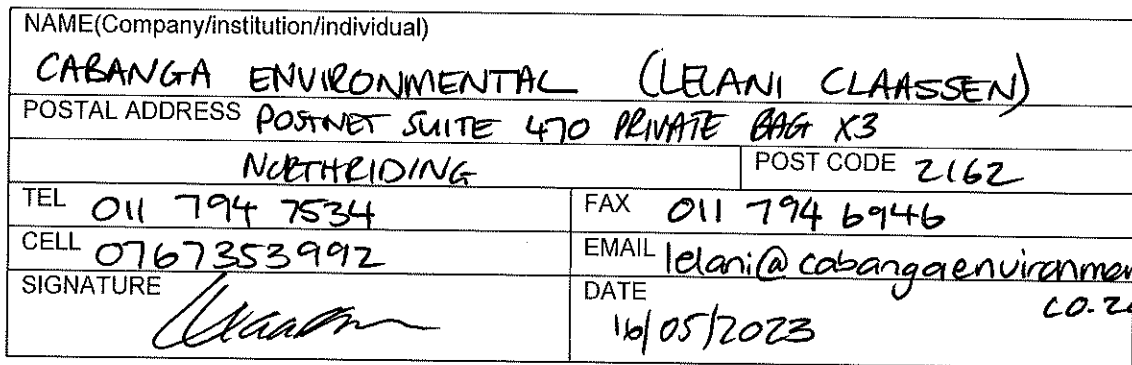 NAME(Company/institution/individual)
CABANGA ENVIRONMENTAL (LELANI CLAASSEN)
POSTAL ADDRESS POSTNET SUITE 470 PRIVATE BAG X3
NORTHRIDING POST CODE 2162
TEL 011 794 7534 FAX 011 794 6946
CELL 0767353992 EMAIL lelani@cabangaenvironmen
co.za
SIGNATURE DATE
16/05/2023